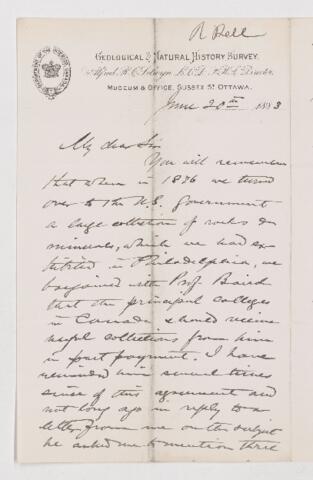 R Bell
GEOLOGICAL & NATURAL HISTORY SURVEY.
Alfred R. C. Selwyn, L.L.D., F.R.S. Director.
MUSEUM & OFFICE, SUSSEX ST. OTTAWA.
June 20th 1883
My dear Sir
You will remember
that when in 1876 we turned
over to the U.S. Government
a large collection of rocks &
minerals, which we had ex-
hibited in Philadelphia, we
bargained with Prof. Baird
that the principal colleges
in Canada should receive
useful collections from him
in part payment. I have
reminded him several times
since of this agreement and
not long ago in reply to a
letter from me on the subject
he asked me to mention three